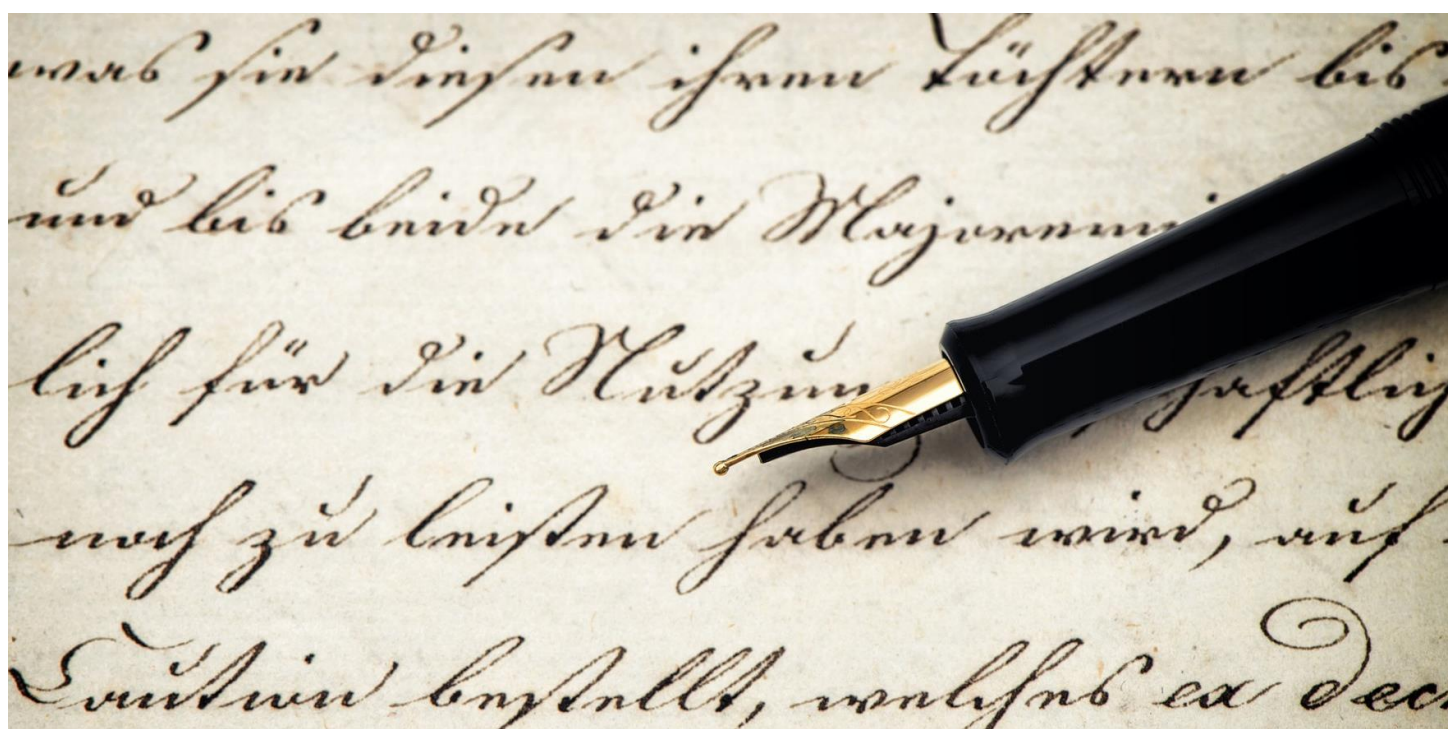 was sie diesen ihren Töchtern bis
und bis beide die Majorenni
lich für die Nutzun haftlich
noch zu leisten haben wird, auf
Caution bestellt, welches ex decr